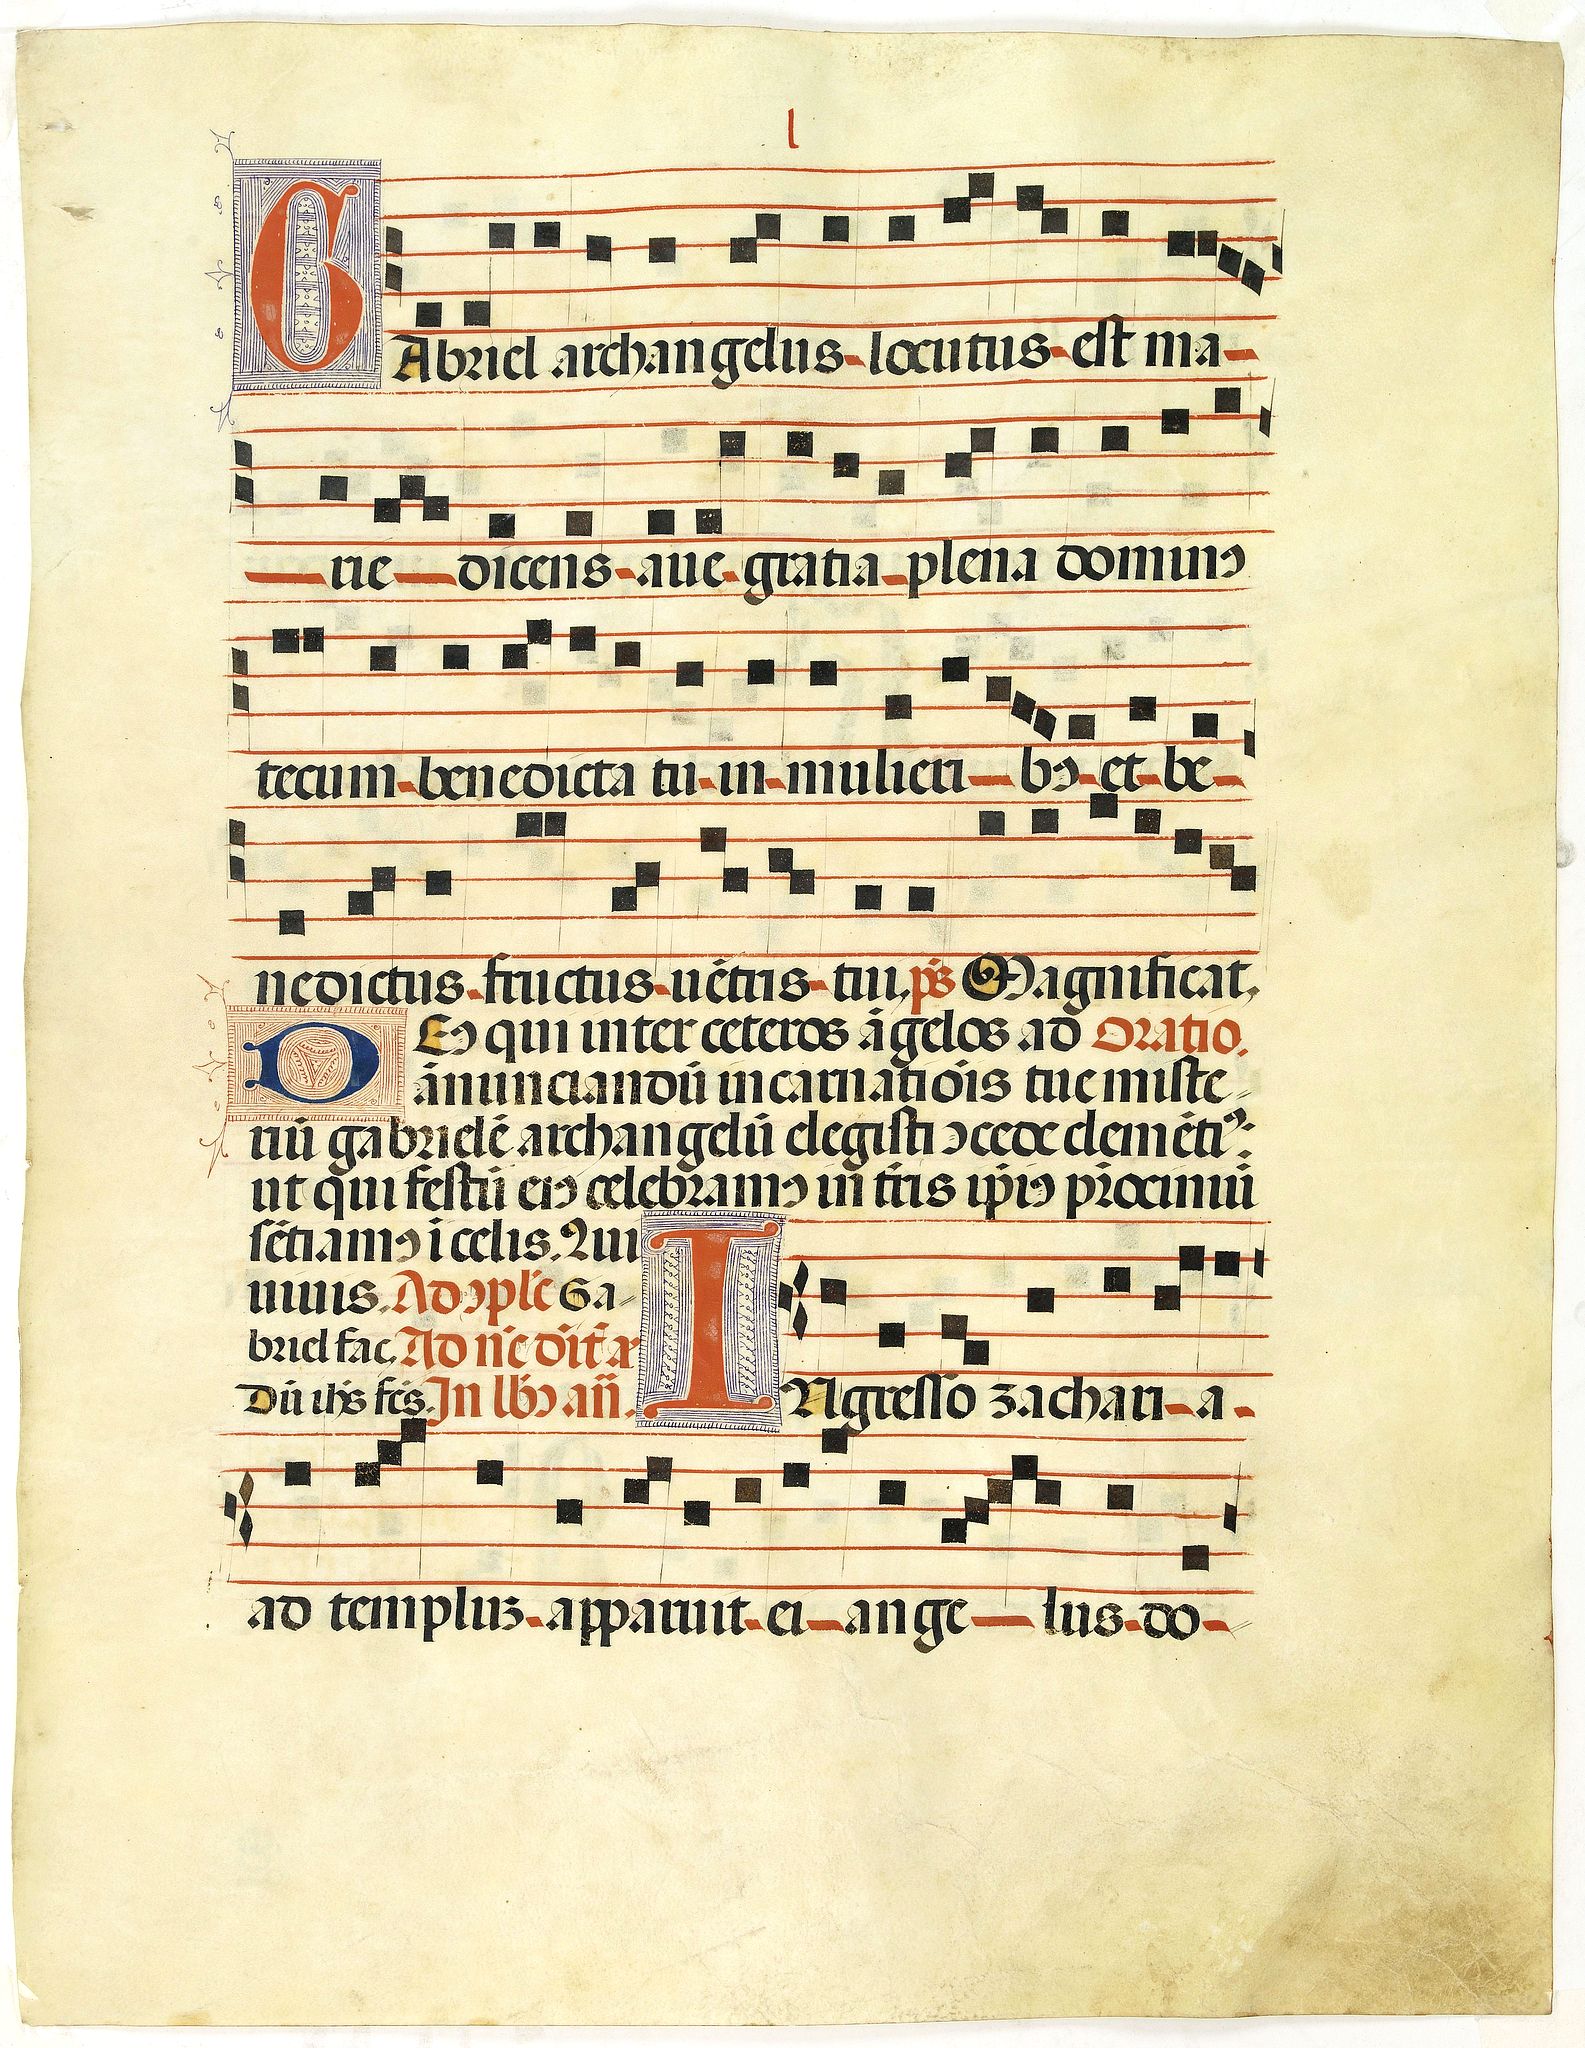 l
GAbriel archangelus locutus est ma-
rie dicens aue gratia plena dominꝰ
tecum benedicta tu in mulieri bꝰ et be-
nedictus fructus uētris tui. p̄s Magnificat.
DEꝰ qui inter ceteros āgelos ad Oratio.
ānunciandū incarnatiōis tue miste-
riū gabrielē archangelū elegisti ꝯcede clemētiꝰ:
ut qui festū eiꝰ celebramꝰ in t̄ris ip̄iꝰ
sētiamꝰ i celis. Qui
uiuis. Ad ꝯple Ga-
briel fac.
Dū ih̄s In lbꝰ añ.
INgresso zachari-a-
ad templuz apparuit ei ange lus do-